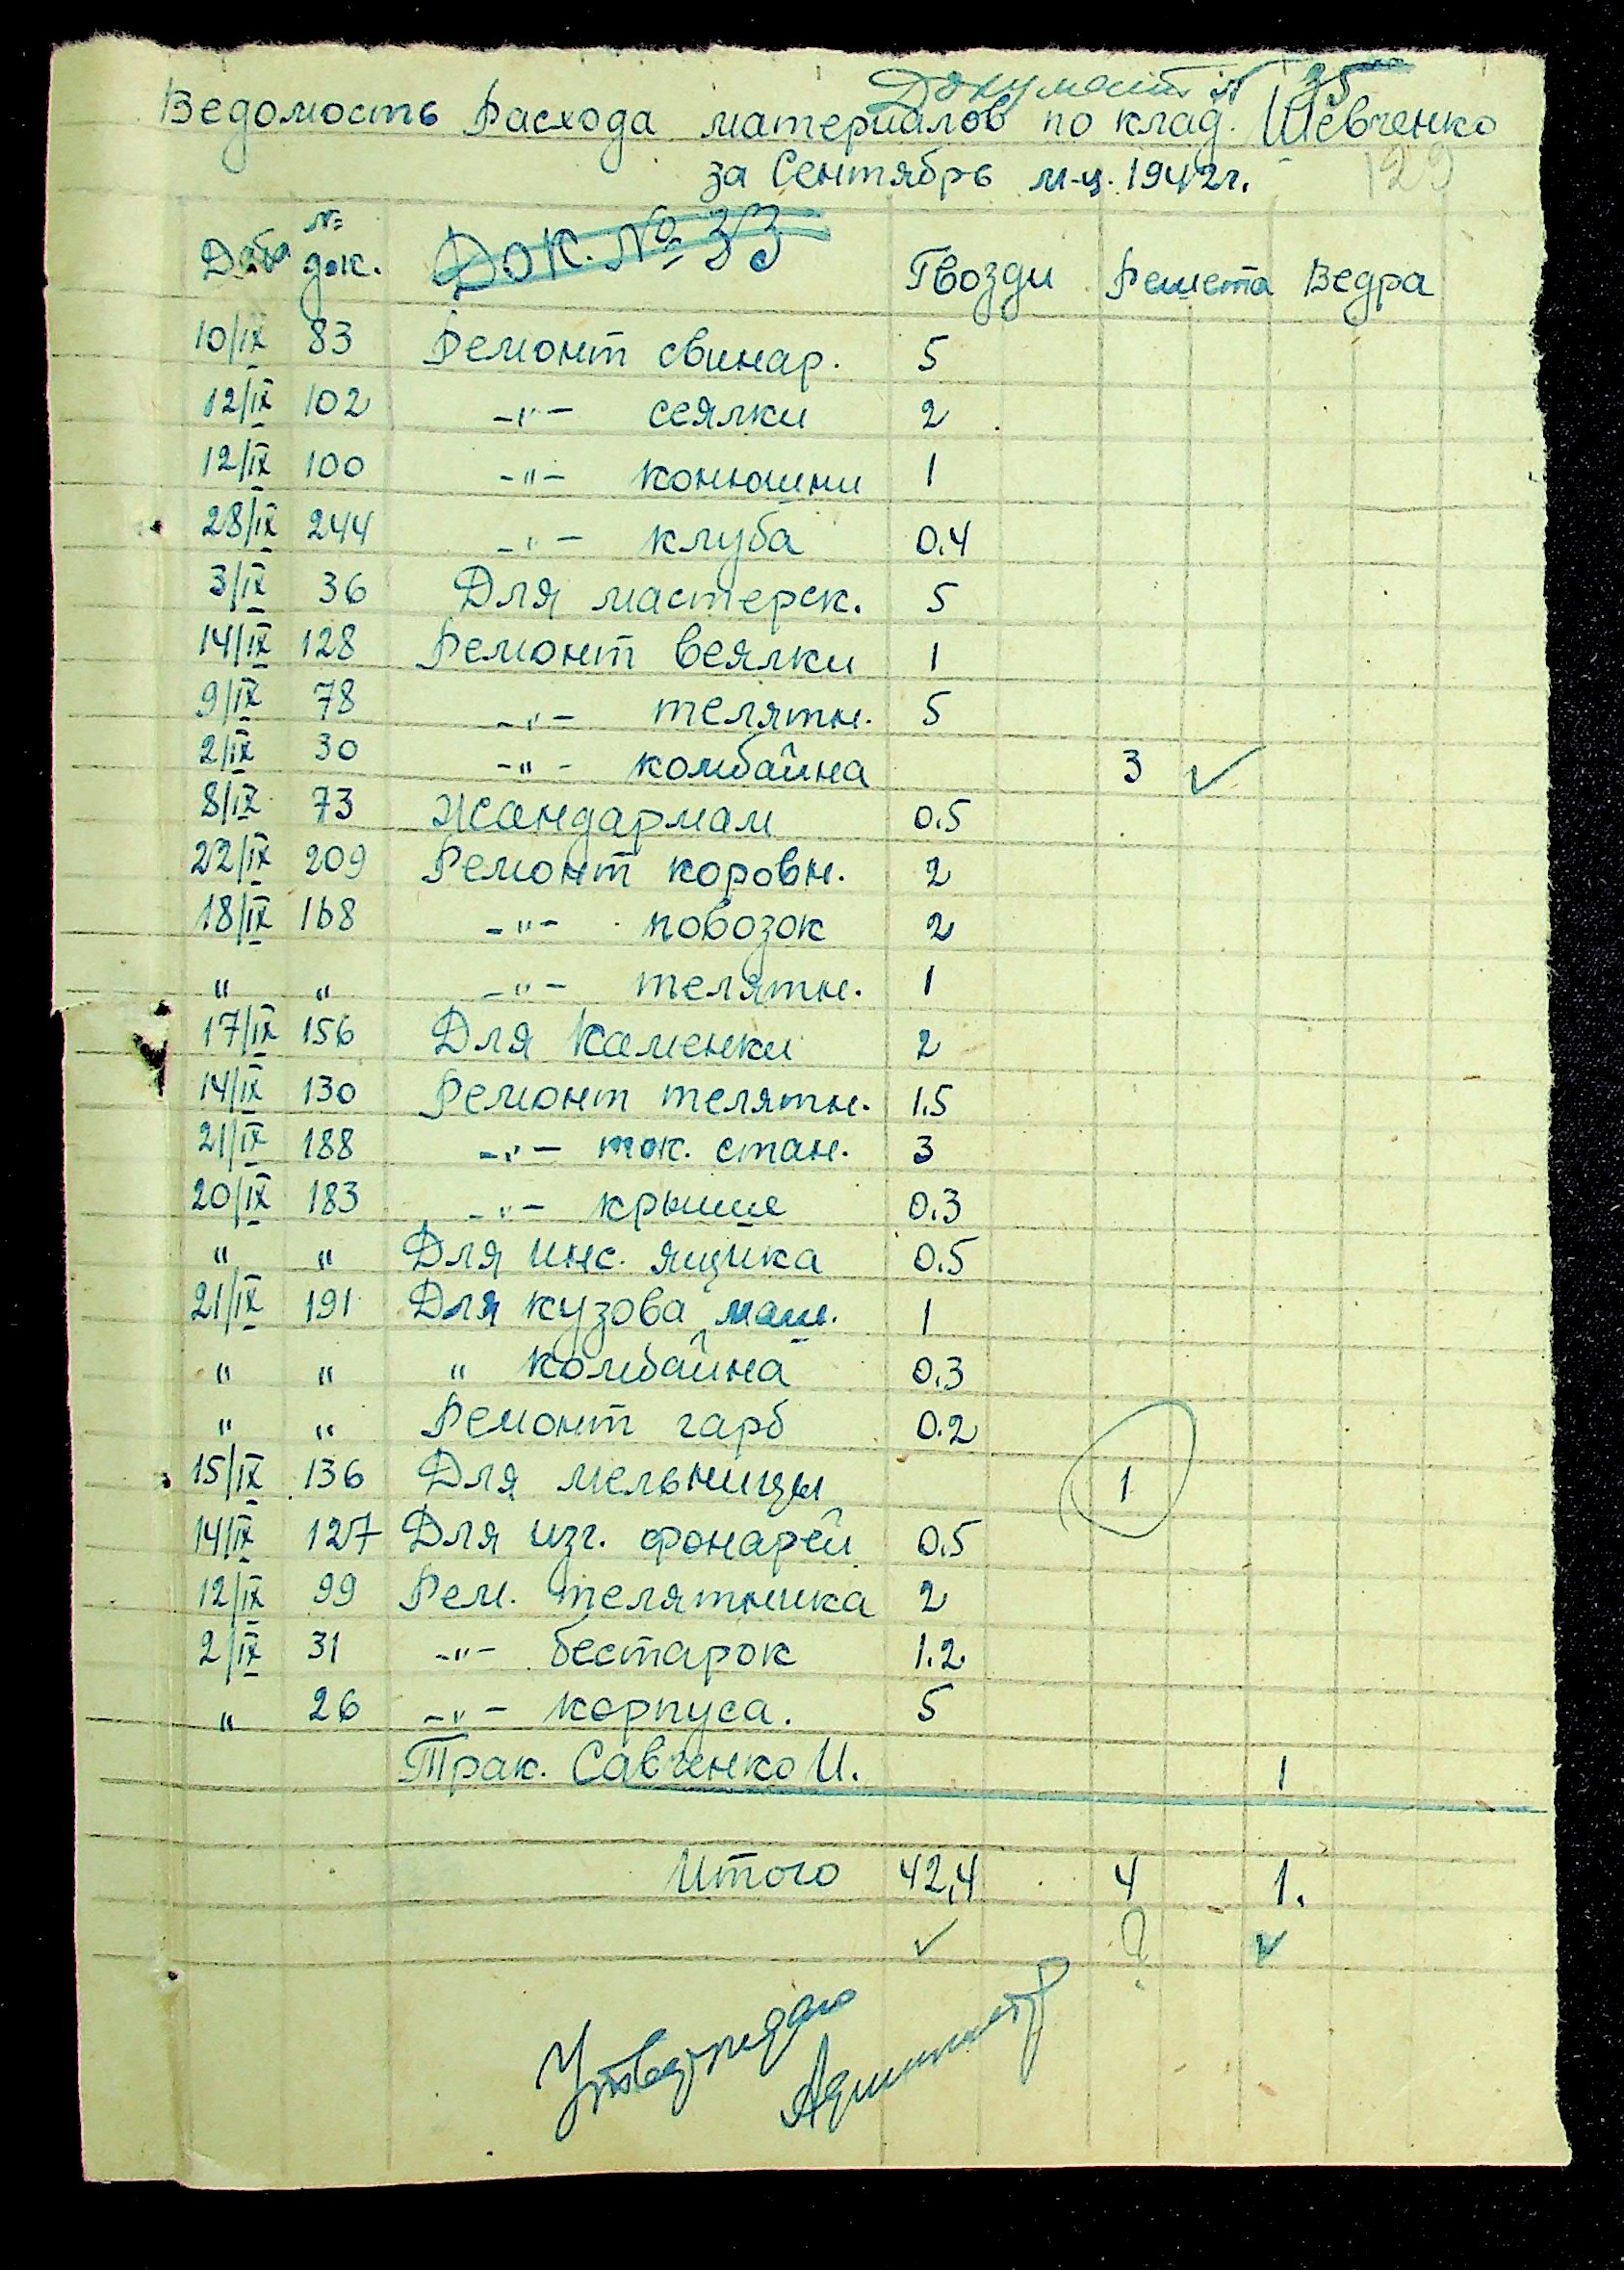 Документ № 35
Ведомость Расхода материалов по клад. Шевченко
за Сентябрь м-ц. 1942г. 129
Дата № док. Док. № 33 Гвозди Решета Ведра
10/IX 83 Ремонт свинар. 5
12/IX 102 -"- сеялки 2
12/IX 100 -"- конюшни 1
28/IX 244 -"- клуба 0.4
3/IX 36 Для мастерск. 5
14/IX 128 Ремонт веялки 1
9/IX 78 -"- телятн. 5
2/IX 30 -"- комбайна 3 ✓
8/IX 73 Жандармам 0.5
22/IX 209 Ремонт коровн. 2
18/IX 168 -"- повозок 2
" " -"- телятн. 1
17/IX 156 Для Каменки 2
14/IX 130 Ремонт телятн. 1.5
21/IX 188 -"- ток. стан. 3
20/IX 183 -"- крыше 0.3
" " Для инс. ящика 0.5
21/IX 191 Для кузова маш. 1
" " " комбайна 0.3
" " Ремонт гарб 0.2
15/IX 136 Для мельницы 1
14/IX 127 Для изг. фонарей 0.5
12/IX 99 Рем. телятника 2
2/IX 31 -"- бестарок 1.2
" 26 -"- корпуса. 5
Трак. Савченко И. 1
Итого 42,4 4 1.
✓ ? ✓
Утверждаю